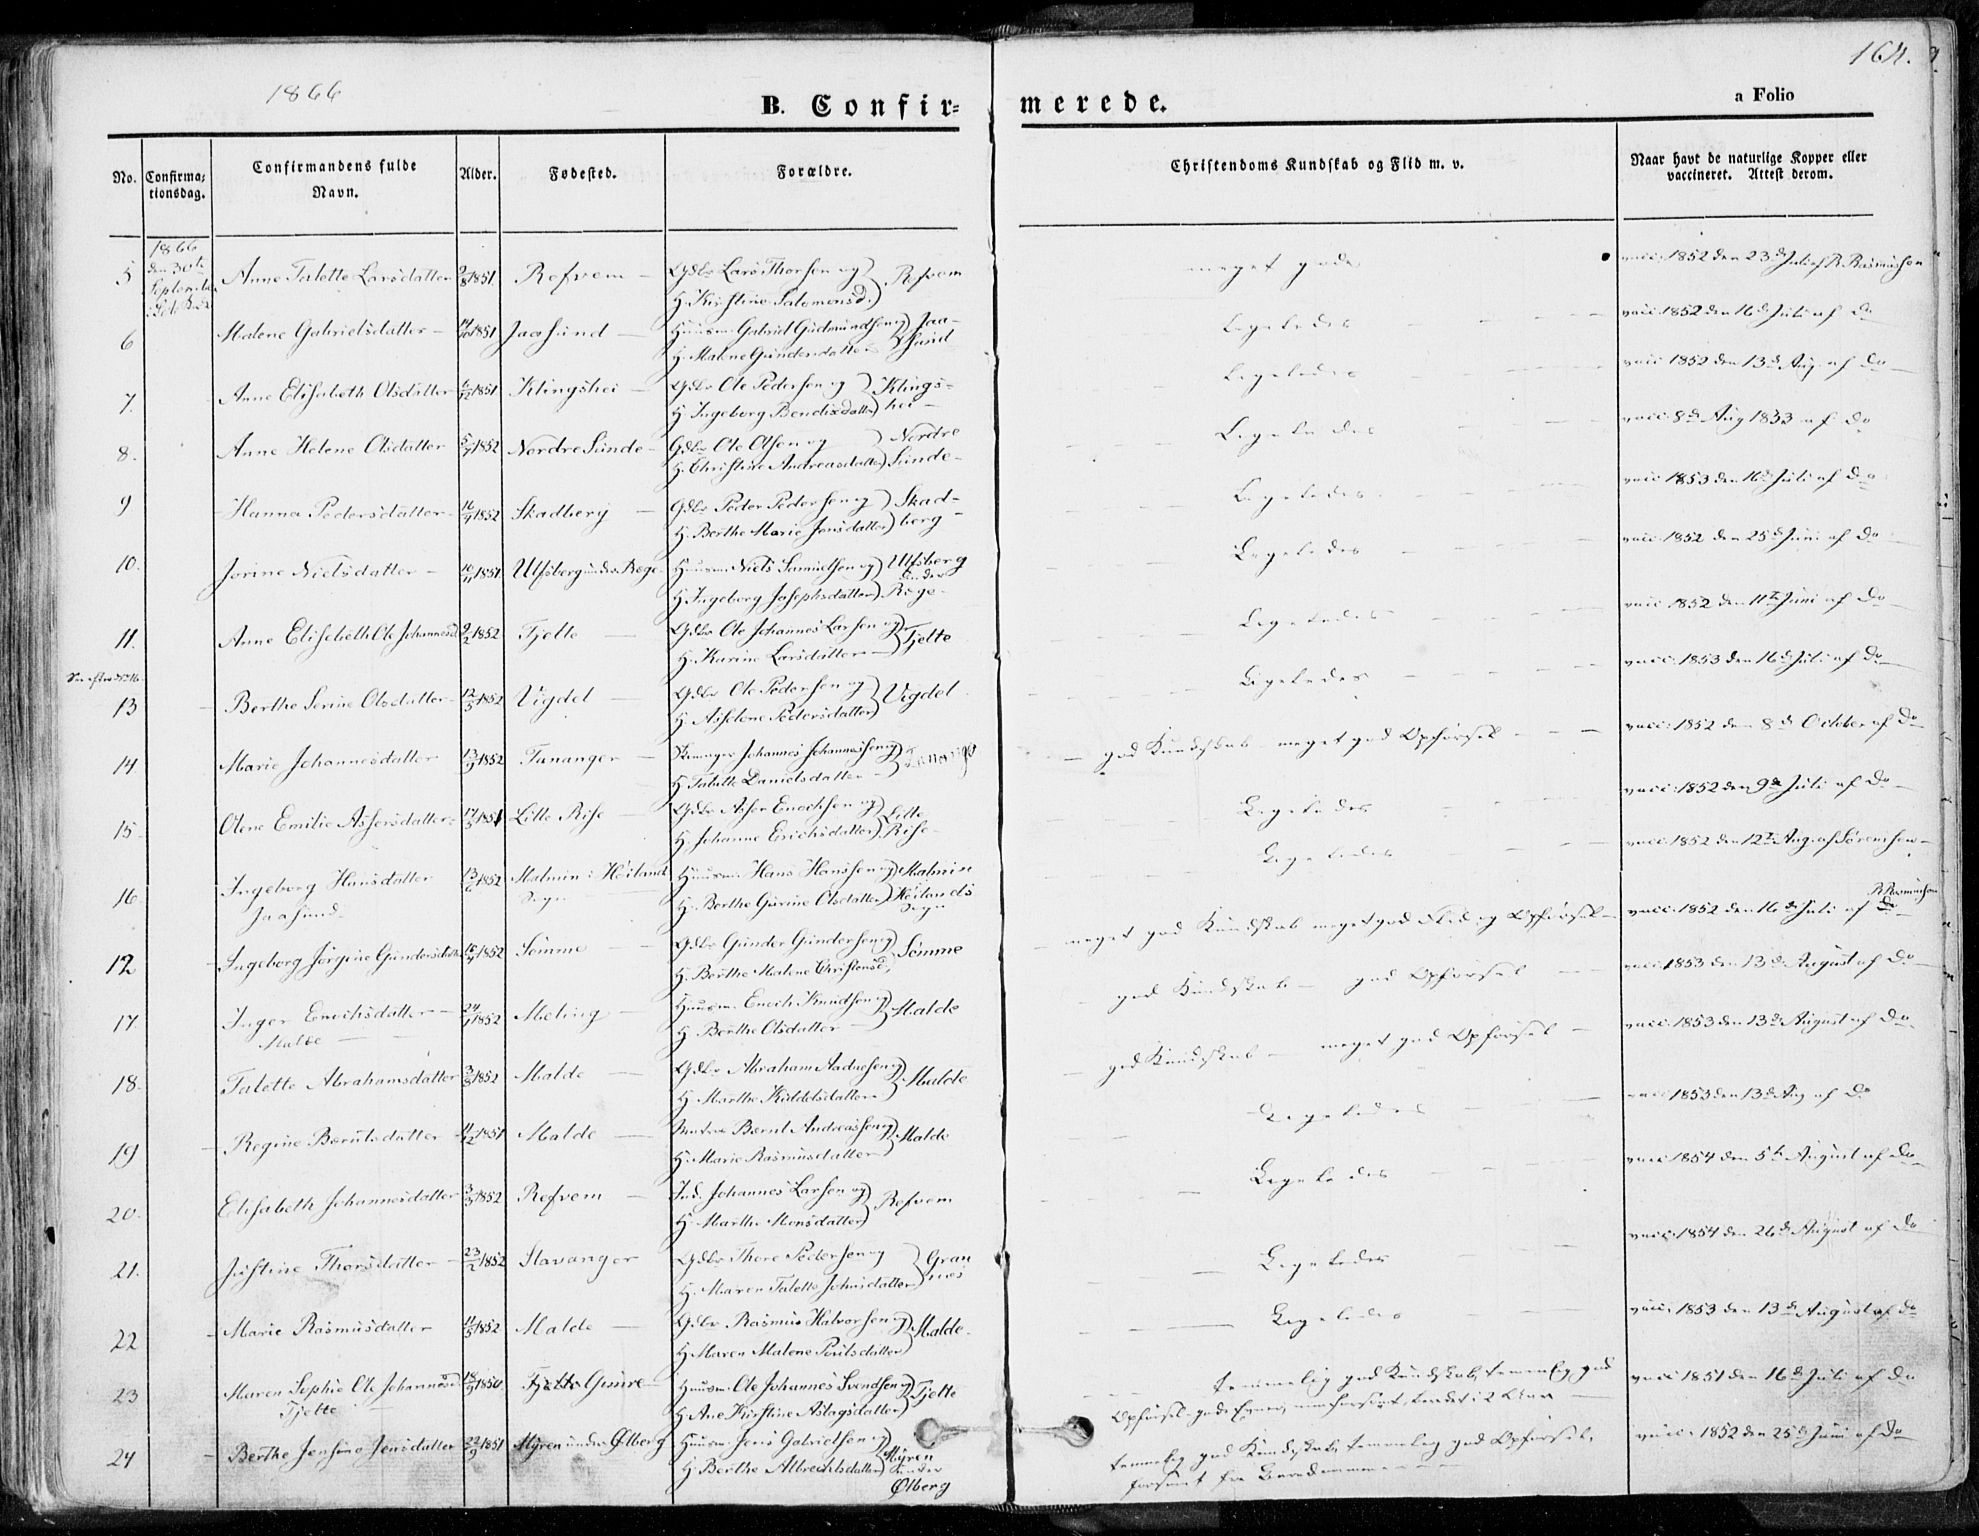 1866
164.
B. Confir=
merede.
a Folio
No.
Confirma=
tionsdag.
Confirmandens fulde
Navn.
Alder.
Fødested.
Forældre.
Christendoms Kundskab og Flid m. v.
Naar havt de naturlige Kopper eller
vaccineret. Attest derom.
1866
den 30te
September
5 Anne Talette Larsdatter 1851 Refvem Gdbr Lars Thorsen og Refvem meget gode vacc: 1852 den 23d Juli af R. Rasmussen
H. Kirstine Salomonsd.
6 Malene Gabrielsdatter 1851 Jaasund Huusm. Gabriel Gudmundsen og Jaa- Ligeledes vacc: 1852 den 16d Juli af Do
H. Malene Gundersdatter sund
7. Anne Elisabeth Olsdatter 1851 Klingshei Gdbr Ole Pedersen og Klings- Ligeledes vacc 1852 den 13d Aug. af Do
H Ingeborg Bendixdatter hei
8. Anne Helene Olsdatter 5/7 1852 Nordre Sunde Gdbr Ole Olsen og Nordre Ligeledes vacc: 8d Aug 1853 af Do
H. Christine Andreasdatter Sunde
9 Hanna Pedersdatter 1852 Skadberg Gdbr Peder Pedersen og Skad- Ligeledes vacc 1853 den 16d Juli af Do
H. Berthe Marie Jensdatter berg
10. Jorine Nielsdatter 10/11 1851 Ulfsberg under Røge Huusm. Niels Samuelsen og Ulfsberg Ligeledes vacc: 1852 den 25d Juni af Do
under
H Ingeborg Josephsdatter Røge
11. Anne Elisabeth Ole Johannesd. 9/2 1852 Tjelte Gdbr Ole Johannes Larsen og Tjelte Ligeledes vacc 1852 den 11te Juni af Do
H. Karine Larsdatter
13 Berthe Serine Olsdatter 12/3 1852 Vigdel Gdbr Ole Pedersen og Vigdel Ligeledes vacc: 1853 den 16d Juli af Do
H. Pedersdatter
14 Marie Johannesdatter 13/9 1852 Tananger Johannes Johannessen og Tananger god Kundskab meget god Opførsel vacc: 1852 den 8d October af Do
H. Talette Danielsdatter
15 Olene Emilie Assersdatter 17/3 1851 Litle Rise Gdbr Asser Enochsen og Litle Ligeledes vacc: 1852 den 9de Juli af Do
H. Johanne Erichsdatter Rise
16 Ingeborg Hansdatter 1852 Malmin i Høiland Huusm. Hans Hansen og Malmin Ligeledes vacc 1852 den 12te Aug. af Sørensen
Jaasund Sogn H. Berthe Gurine Olsdatter Høilands
Sogn
R Rasmussen
12 Ingeborg Jørgine Gundersdatter 1852 Sømme Gdbr Gunder Gundersen og Sømme meget god Kundskab meget god Flid og Opførsel vacc: 1852 den 16d Juli af Do
H. Berthe Malene Christensd.
17. Inger Enochsdatter 1852 Meling Huusm. Enoch Knudsen og Malde god Kundskab god Opførsel vacc: 1853 den 13d August af Do
Malde H. Berthe Olsdatter
18. Talette Abrahamsdatter 1852 Malde Gdbr Abraham Aadnesen og Malde god Kundskab meget god Opførsel vacc: 1853 den 13d August af Do
H Marthe Kiddelsdatter
19 Regine Berntsdatter 1851 Malde Bernt Andreassen og Malde Ligeledes vacc 1853 den 13d Aug af Do
H. Marie Rasmusdatter
20. Elisabeth Johannesdatter 1852 Refvem Ind. Johannes Larsen og Refvem Ligeledes vacc: 1854 den 5te August af Do
H. Marthe Monsdatter
21. Justine Thorsdatter 23/2 1852 Stavanger Gdbr Thore Pedersen og Gran Ligeledes vacc: 1854 den 26d August af Do
H. Maren Talette Johnsdatter nes
22 Marie Rasmusdatter 11/5 1852 Malde Gdbr Rasmus Halvorsen og Malde. Ligeledes vacc: 1853 den 13d August af Do
H. Maren Malene Poulsdatter
23 Maren Sophie Ole Johannesd. 1850 Huusm. Ole Johannes Svendsen og Tjelte temmelig god Kundskab, temmelig god vacc 1851 den 16d Juli af Do
Tjelte H. Ane Kirstine Aslagsdatter Opførsel
24 Berthe Jensine Jensdatter 22/9 1851 Myren under Ølberg Huusm Jens Gabrielsen og Myren temmelig god Kundskab, temmelig god Opførsel, vacc: 1852 den 25d Juni af Do
H Berthe Albrechtsdatter under
Ølberg